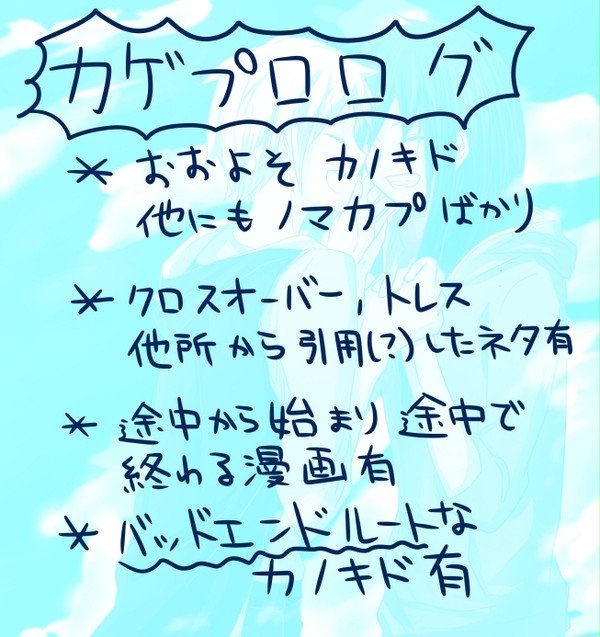 カゲプロログ
* おおよそ カノキド
他にも ノマカプばかり
* クロスオーバー, トレス
他所から引用(?)したネタ有
* 途中から始まり 途中で
終わる漫画有
* バッドエンドルートな
カノキド有